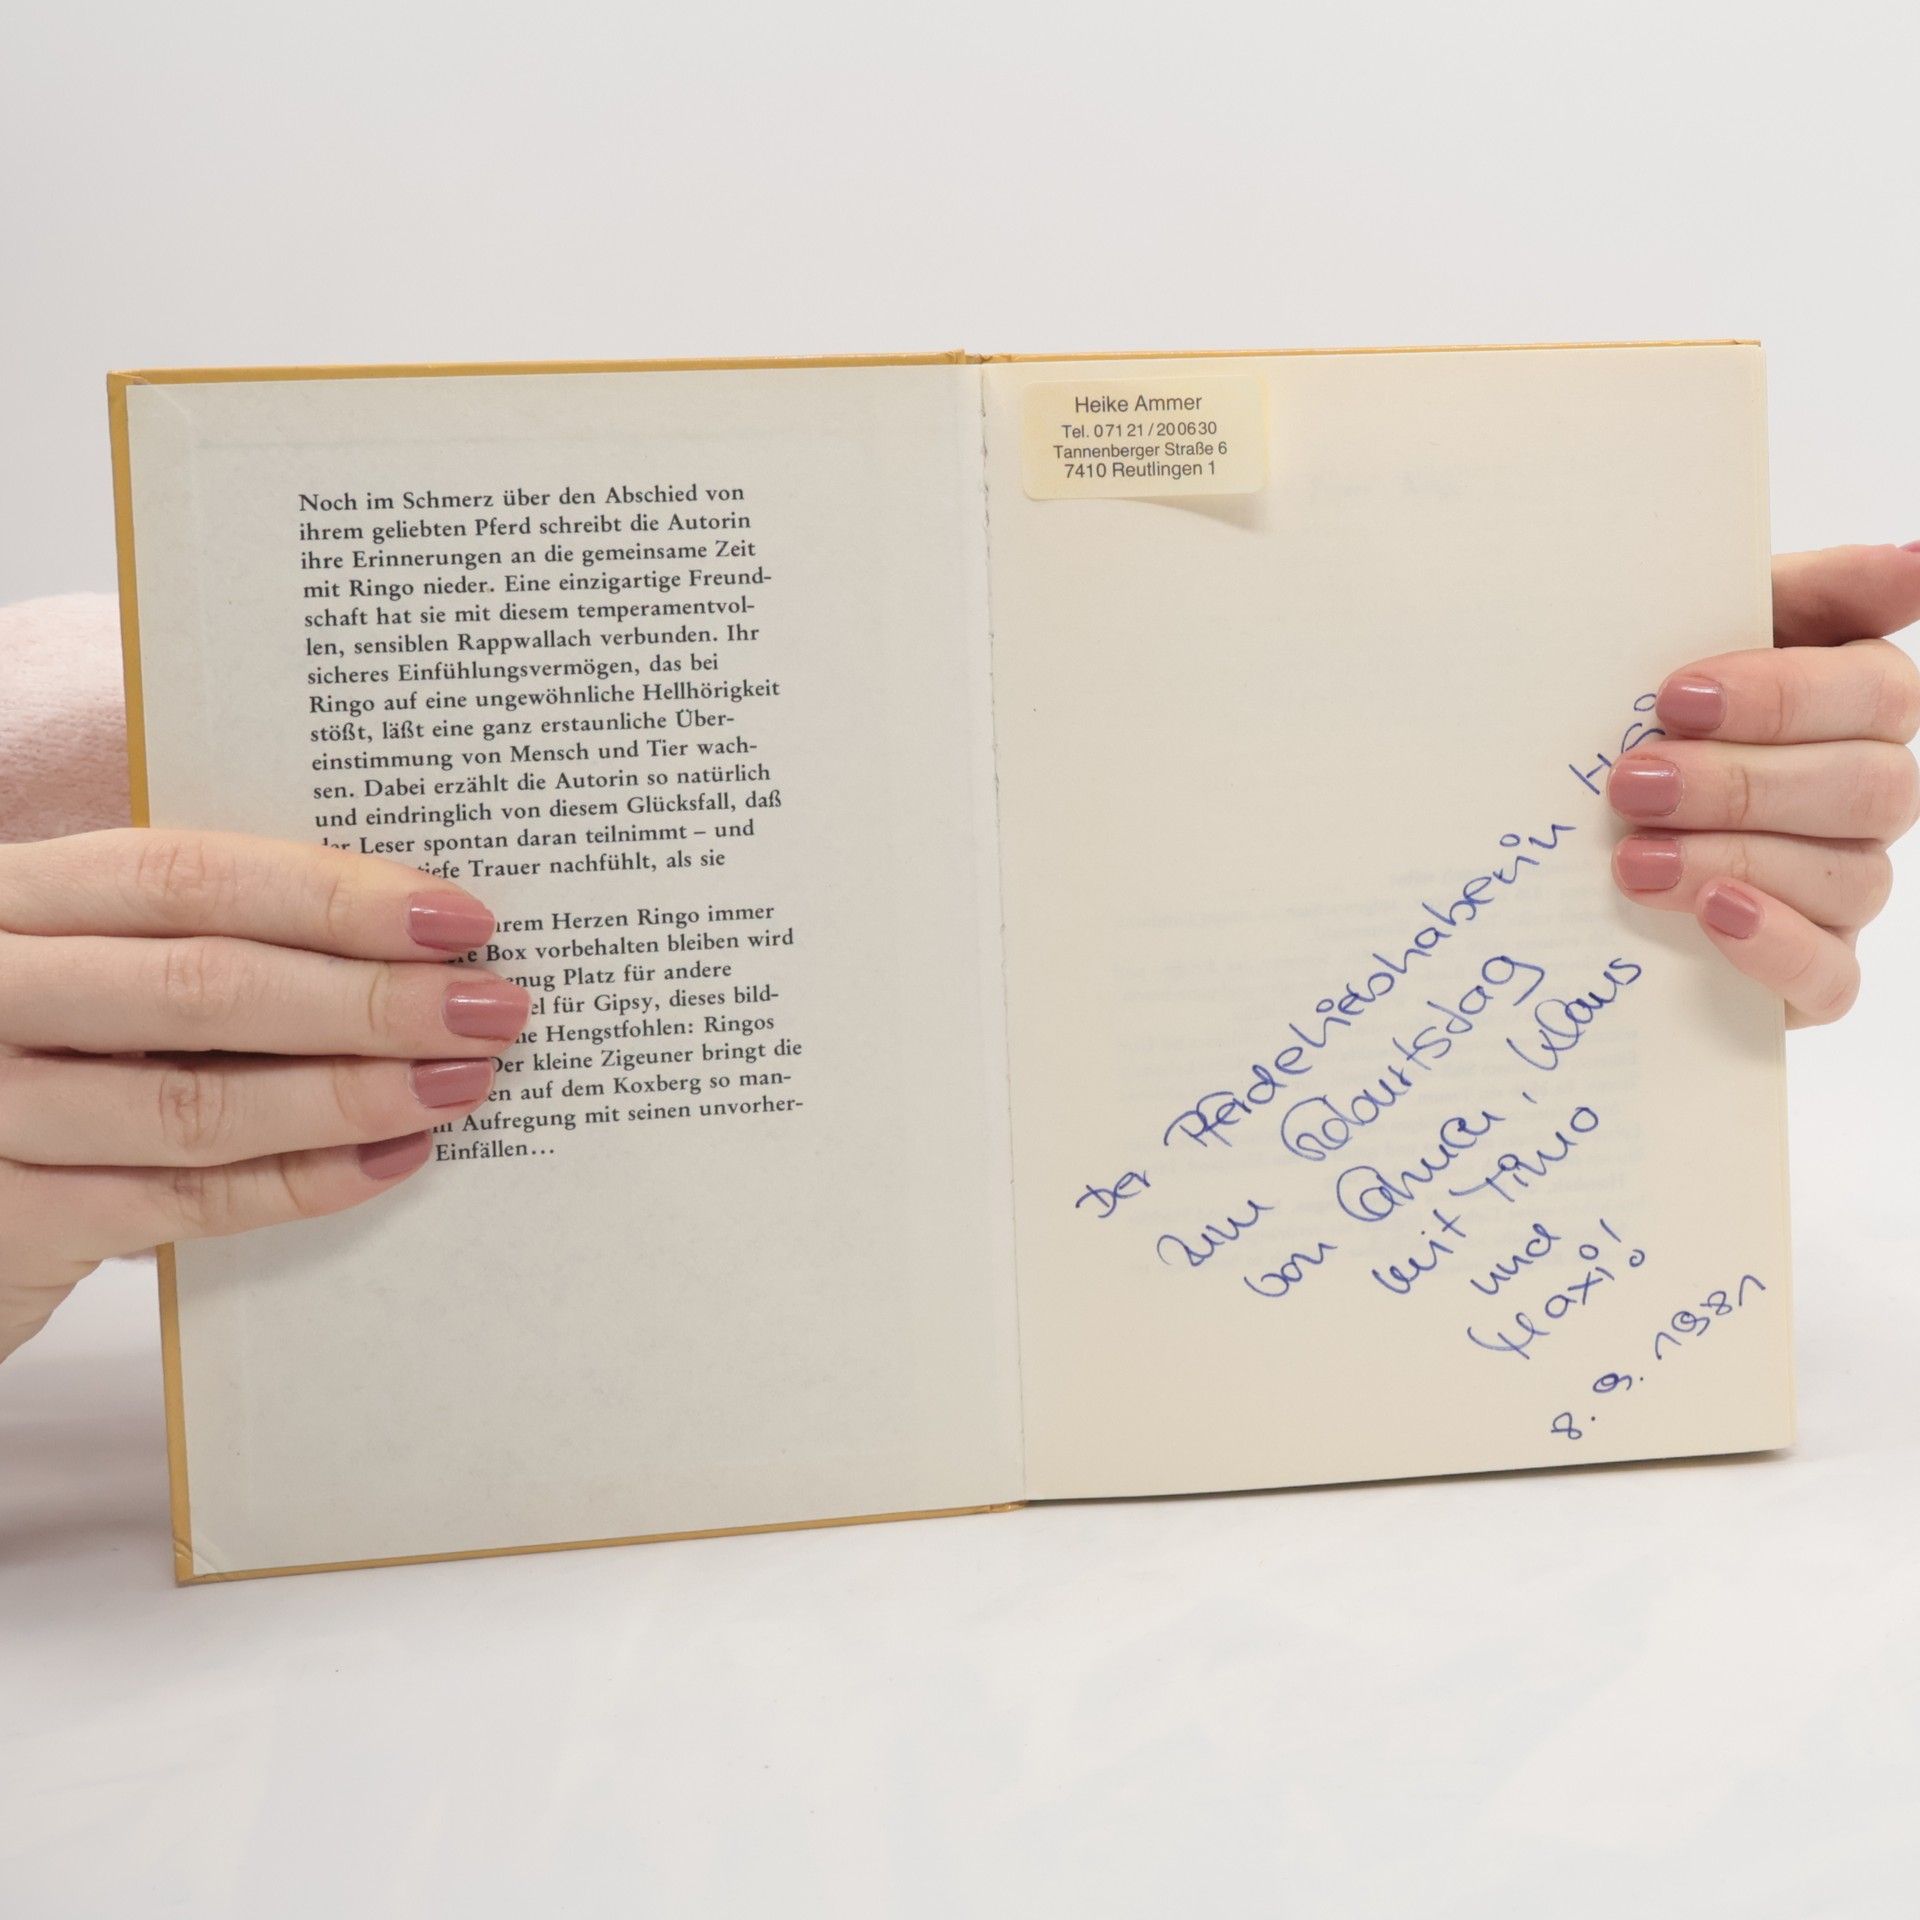 Noch im Schmerz über den Abschied von
ihrem geliebten Pferd schreibt die Autorin
ihre Erinnerungen an die gemeinsame Zeit
mit Ringo nieder. Eine einzigartige Freund-
schaft hat sie mit diesem temperamentvol-
len, sensiblen Rappwallach verbunden. Ihr
sicheres Einfühlungsvermögen, das bei
Ringo auf eine ungewöhnliche Hellhörigkeit
stößt, läßt eine ganz erstaunliche Über-
einstimmung von Mensch und Tier wach-
sen. Dabei erzählt die Autorin so natürlich
und eindringlich von diesem Glücksfall, daß
der Leser spontan daran teilnimmt – und
tiefe Trauer nachfühlt, als sie
Herzen Ringo immer
Box vorbehalten bleiben wird
Platz für andere
für Gipsy, dieses bild-
Hengstfohlen: Ringos
Der kleine Zigeuner bringt die
auf dem Koxberg so man-
Aufregung mit seinen unvorher-
Einfällen...
Heike Ammer
Tel. 07121/200630
Tannenberger Straße 6
7410 Reutlingen 1
Der Pferdeliebhaberin
zum Geburtstag
von , Klaus
mit Timo
und
Maxi!
8. 9. 1981